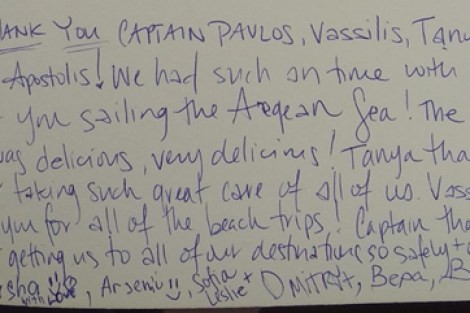 ANK YOU CAPTAIN PAVLOS, Vassilis, Tany
Apostolis! We had such an time with
you sailing the Aegean Sea! The
was delicious, very delicious! Tanya tha
taking such great care of all of us. Vass
you for all of the beach trips! Captain tha
getting us to all of our destinations so safely +
sha with love, Arseniy, Sofia + Leslie, Dmitry, Вера,